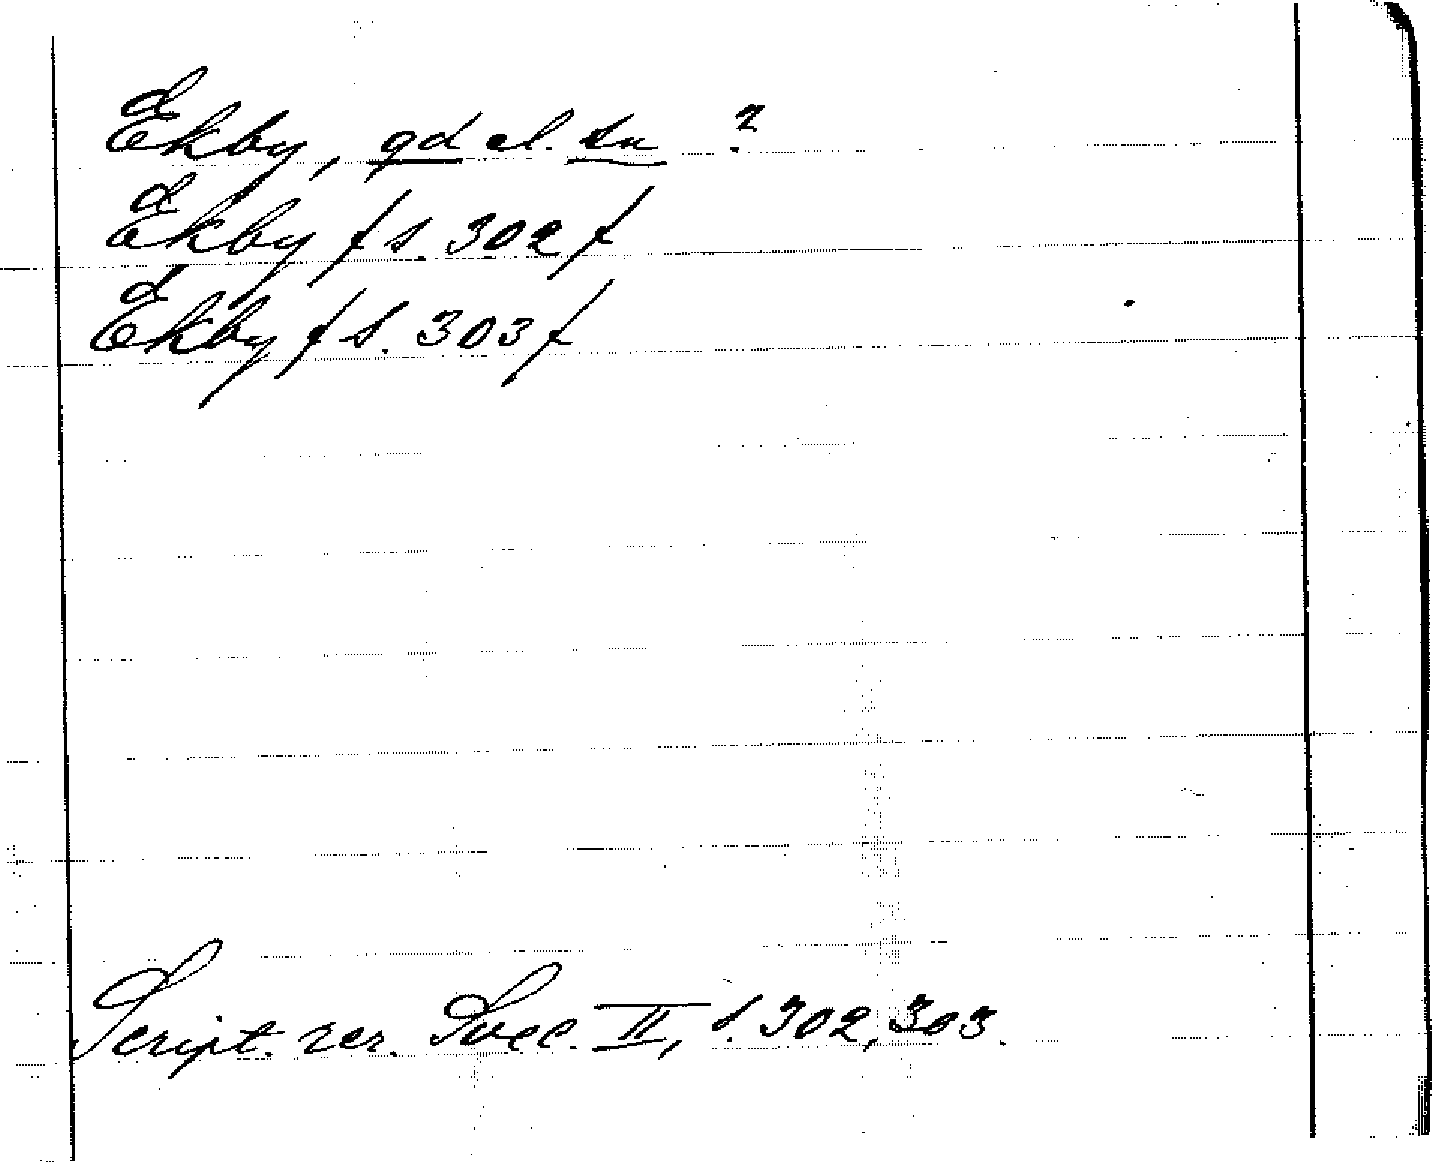 Ekby, gd el. sn ?
Ekby /s. 302/
Ekby /s. 303/
Script. rer. Svec. II, s. 302, 303.